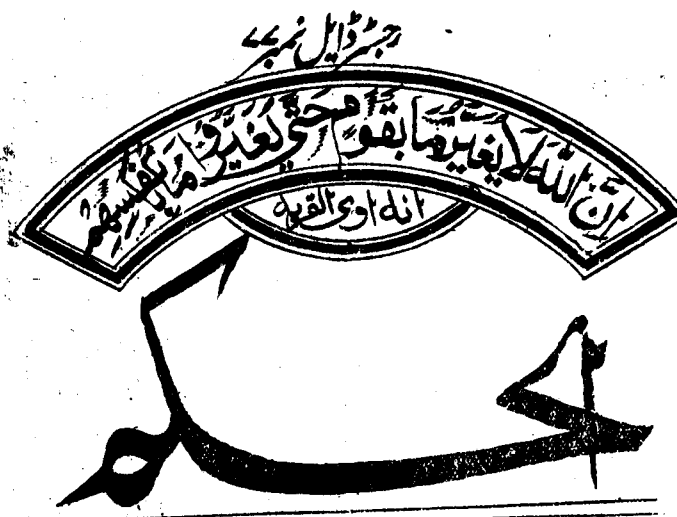 رجسٹرڈ ایل نمبر ۷۷
إِنَّ اللهَ لَا يُغَيِّرُ مَا بِقَوْمٍ حَتَّى يُغَيِّرُوا مَا بِأَنْفُسِهِمْ
انه اوى القريه
الحكم